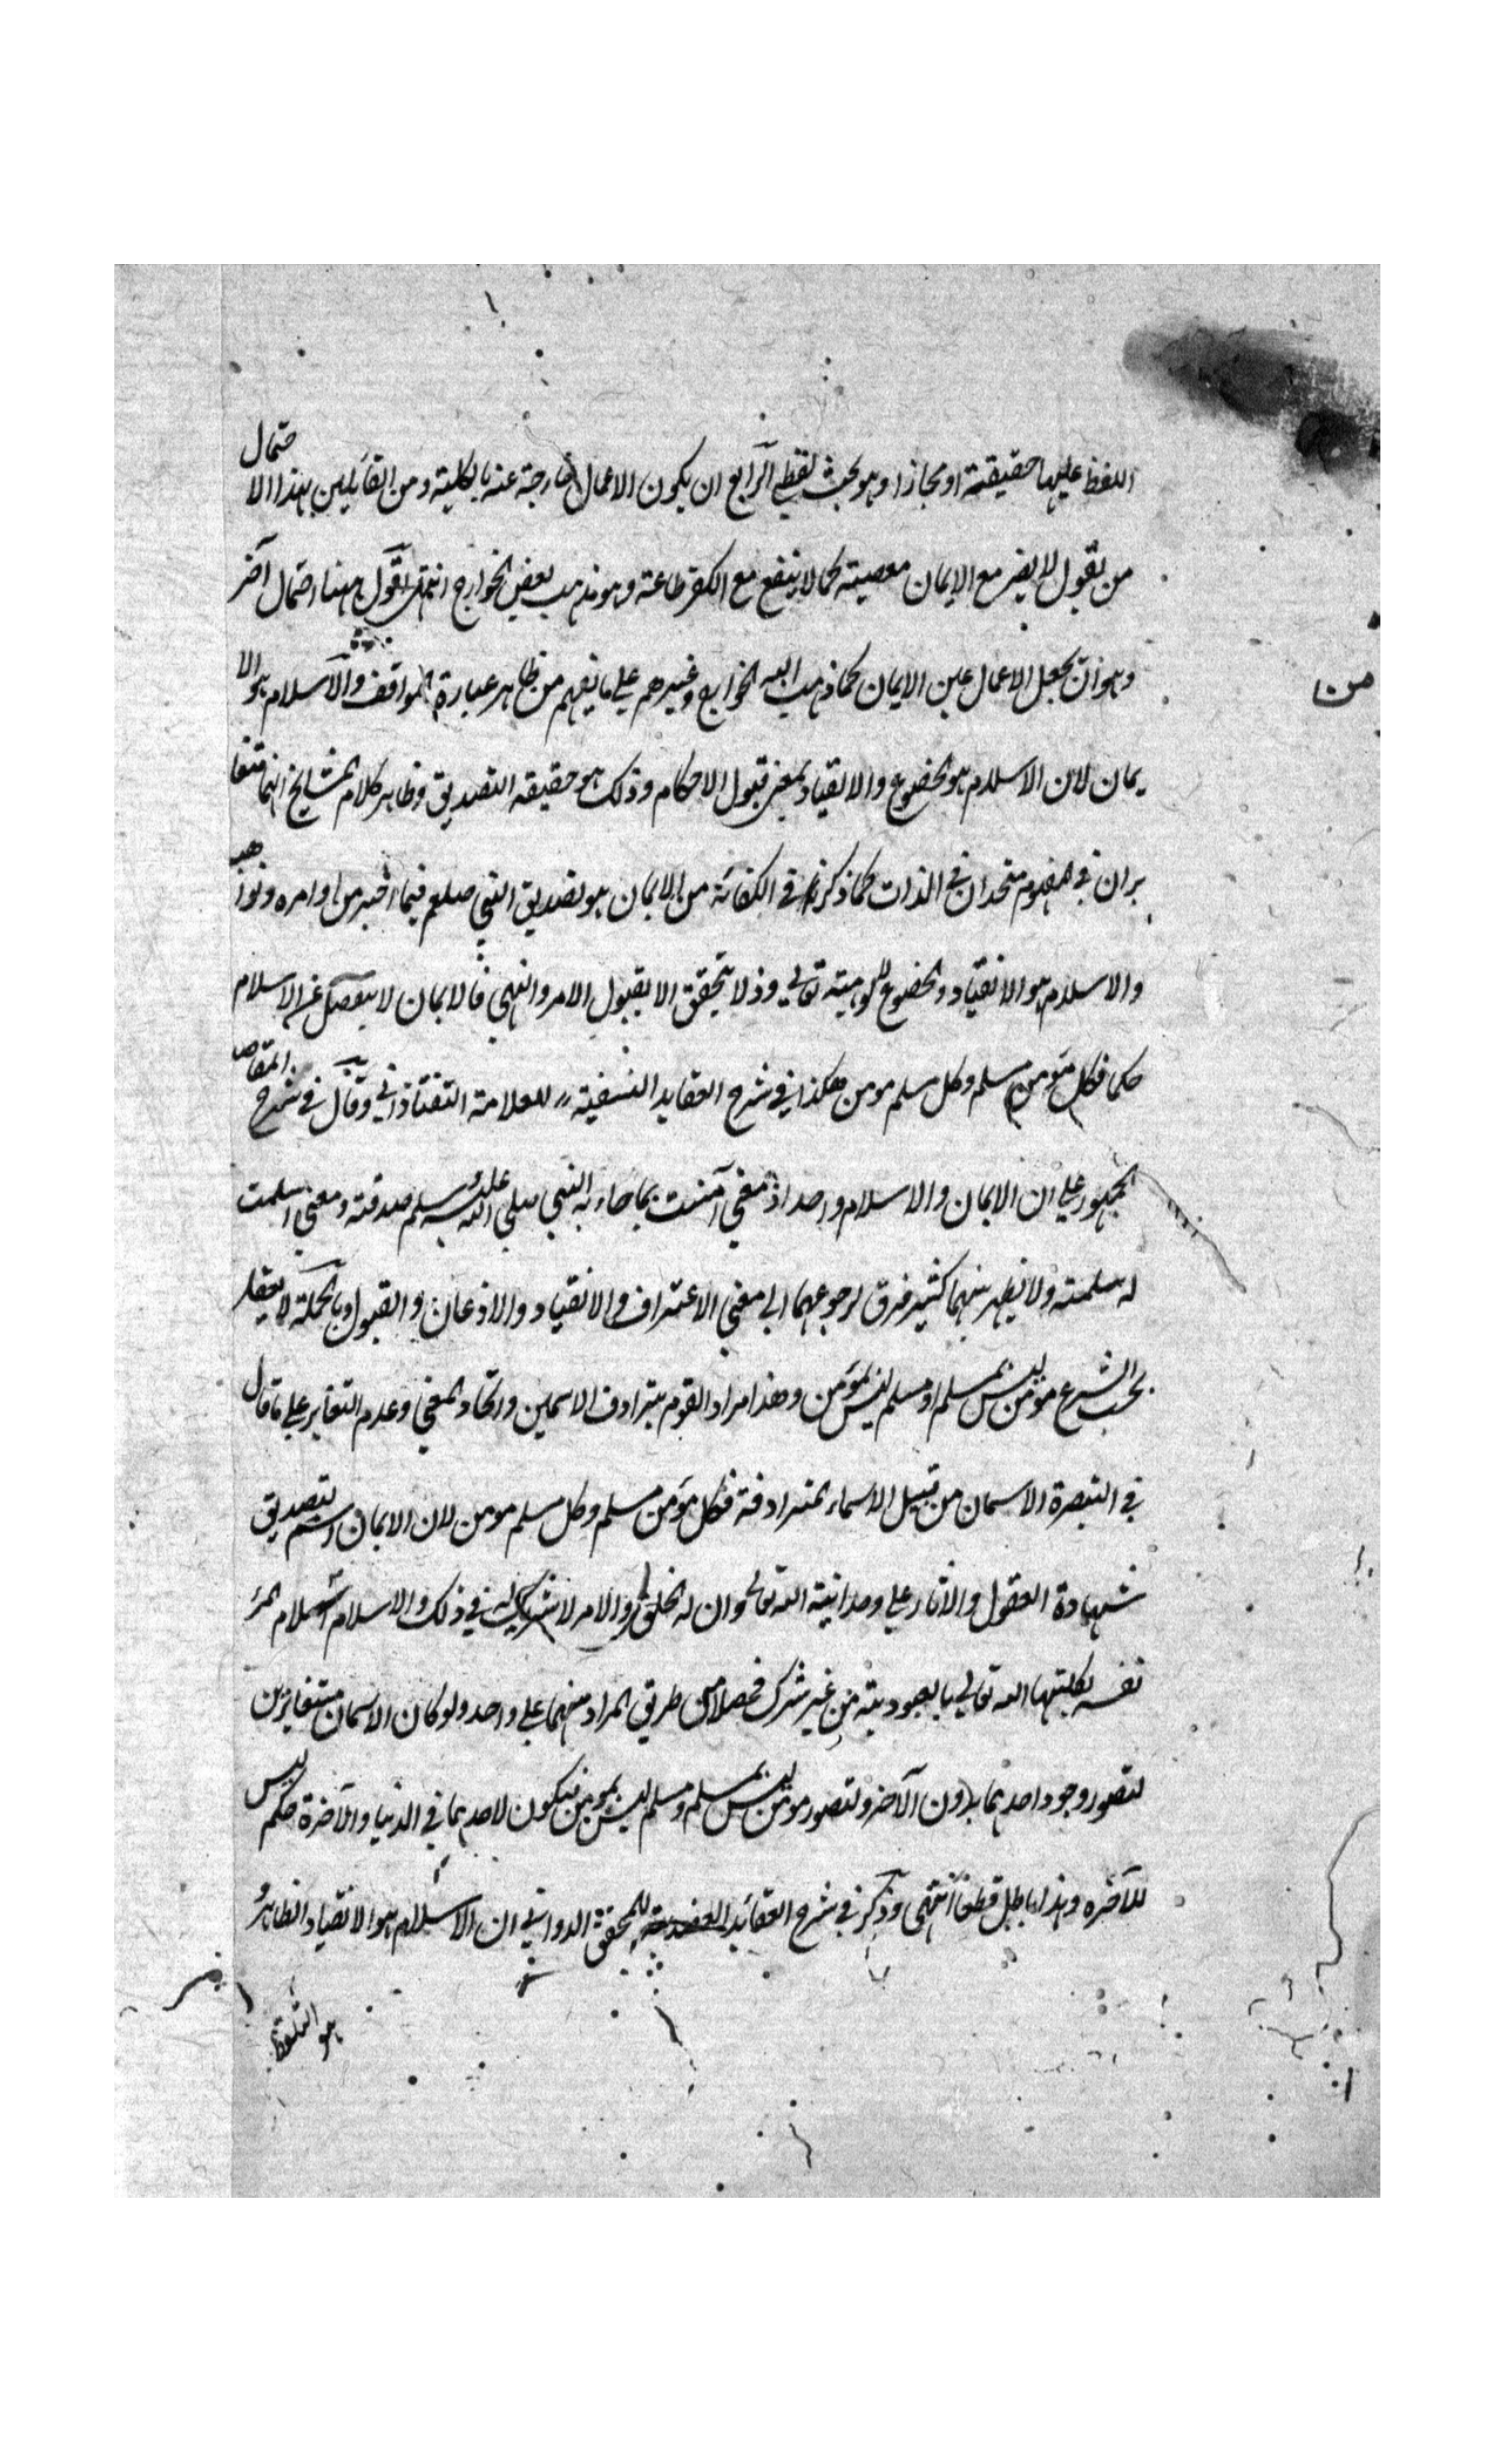 اللفظ عليها حقيقة او مجازا وهو بحث لفظي الرابع ان يكون الاعمال خارجة عنه بالكلية ومن القايلين بهذا الاحتمال
من يقول لا يضر مع الايمان معصية كما لا ينفع مع الكفر طاعة وهو مذهب بعض الخوارج انتهى اقول ههنا احتمال آخر
وهو ان يجعل الاعمال عين الايمان كما ذهب اليه الخوارج وغيرهم علي ما يفهم من ظاهر عبارة المواقف والاسلام هو الا
يمان لان الاسلام هو الخضوع والانقياد بمعنى قبول الاحكام وذلك هو حقيقه التصديق وظاهر كلام المشايخ انهما متغا
يران في المفهوم متحدان في الذات كما ذكر في الكفاية من الايمان هو تصديق النبي صلعم فيما اخبر من اوامره ونواهيه
والاسلام هو الانقياد والخضوع لالوهيته تعالي وذلا يتحقق الا بقبول الامر والنهي فالايمان لا ينفصل عن الاسلام
حكما فكل مؤمن مسلم وكل مسلم مومن هكذا في شرح العقايد النسفية للعلامة التفتازاني وقال في شرح المقاصد
الجمهور علي ان الايمان والاسلام واحد اذ معني آمنت بما جاء به النبي صلي الله عليه وسلم صدقته ومعني اسلمت
له سلمته ولا يظهر بينهما كثير فرق لرجوعهما الي معني الاعتراف والانقياد والاذعان والقبول وبالجملة لا يعقل
بحسب الشرع مؤمن ليس بمسلم او مسلم ليس بمؤمن وهذا مراد القوم بترادف الاسمين واتحاد المعني وعدم التغاير علي ما قال
في التبصرة الاسمان من قبيل الاسماء المترادفة فكل مؤمن مسلم وكل مسلم مومن لان الايمان اسم لتصديق
شهادة العقول والاثار علي وحدانية الله تعالى وان له الخلق والامر لا شريك له في ذلك والاسلام اسلام المرء
نفسه بكليتها الله تعالي بالعبودية من غير شرك فحصلا من طريق المراد منهما علي واحد ولو كان الاسمان متغايرين
لتصور وجود احدهما بدون الآخر ولتصور مؤمن ليس بمسلم ومسلم ليس بمومن فيكون لاحدهما في الدنيا والآخرة حكم ليس
للآخره وهذا باطل قطعا انتهى وذكر في شرح العقائد العضدية للمحقق الدواني ان الاسلام هو الانقياد الظاهر و
هو التلفظ
من